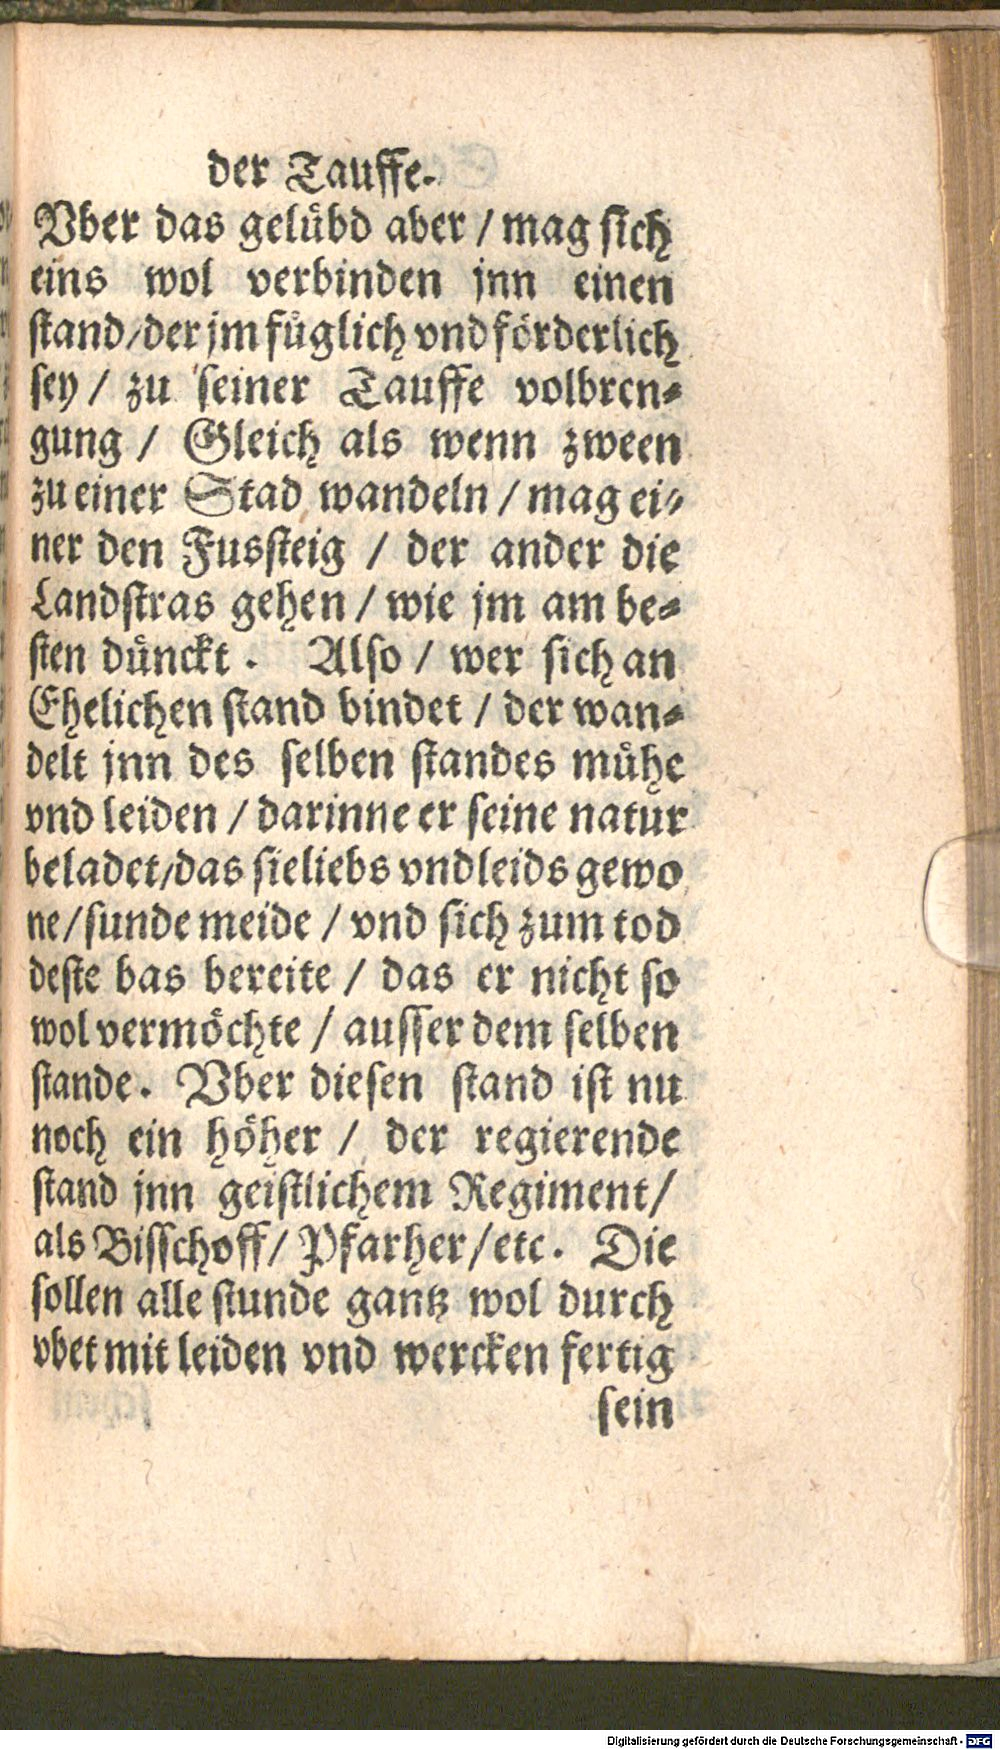 der Tauffe.
Vber das gelübd aber / mag sich
eins wol verbinden jnn einen
stand/der jm füglich vnd förderlich
sey / zu seiner Tauffe volbren-
gung / Gleich als wenn zween
zu einer Stad wandeln / mag ei-
ner den Fussteig / der ander die
Landstras gehen / wie jm am be-
sten dünckt. Also / wer sich an
Ehelichen stand bindet / der wan-
delt jnn des selben standes mühe
vnd leiden / darinne er seine natur
beladet/das sie liebs vnd leids gewo
ne/sunde meide / vnd sich zum tod
deste bas bereite / das er nicht so
wol vermöchte / ausser dem selben
stande. Vber diesen stand ist nu
noch ein höher / der regierende
stand jnn geistlichem Regiment/
als Bisschoff/ Pfarher/etc. Die
sollen alle stunde gantz wol durch
vbet mit leiden vnd wercken fertig
sein
Digitalisierung gefördert durch die Deutsche Forschungsgemeinschaft - DFG